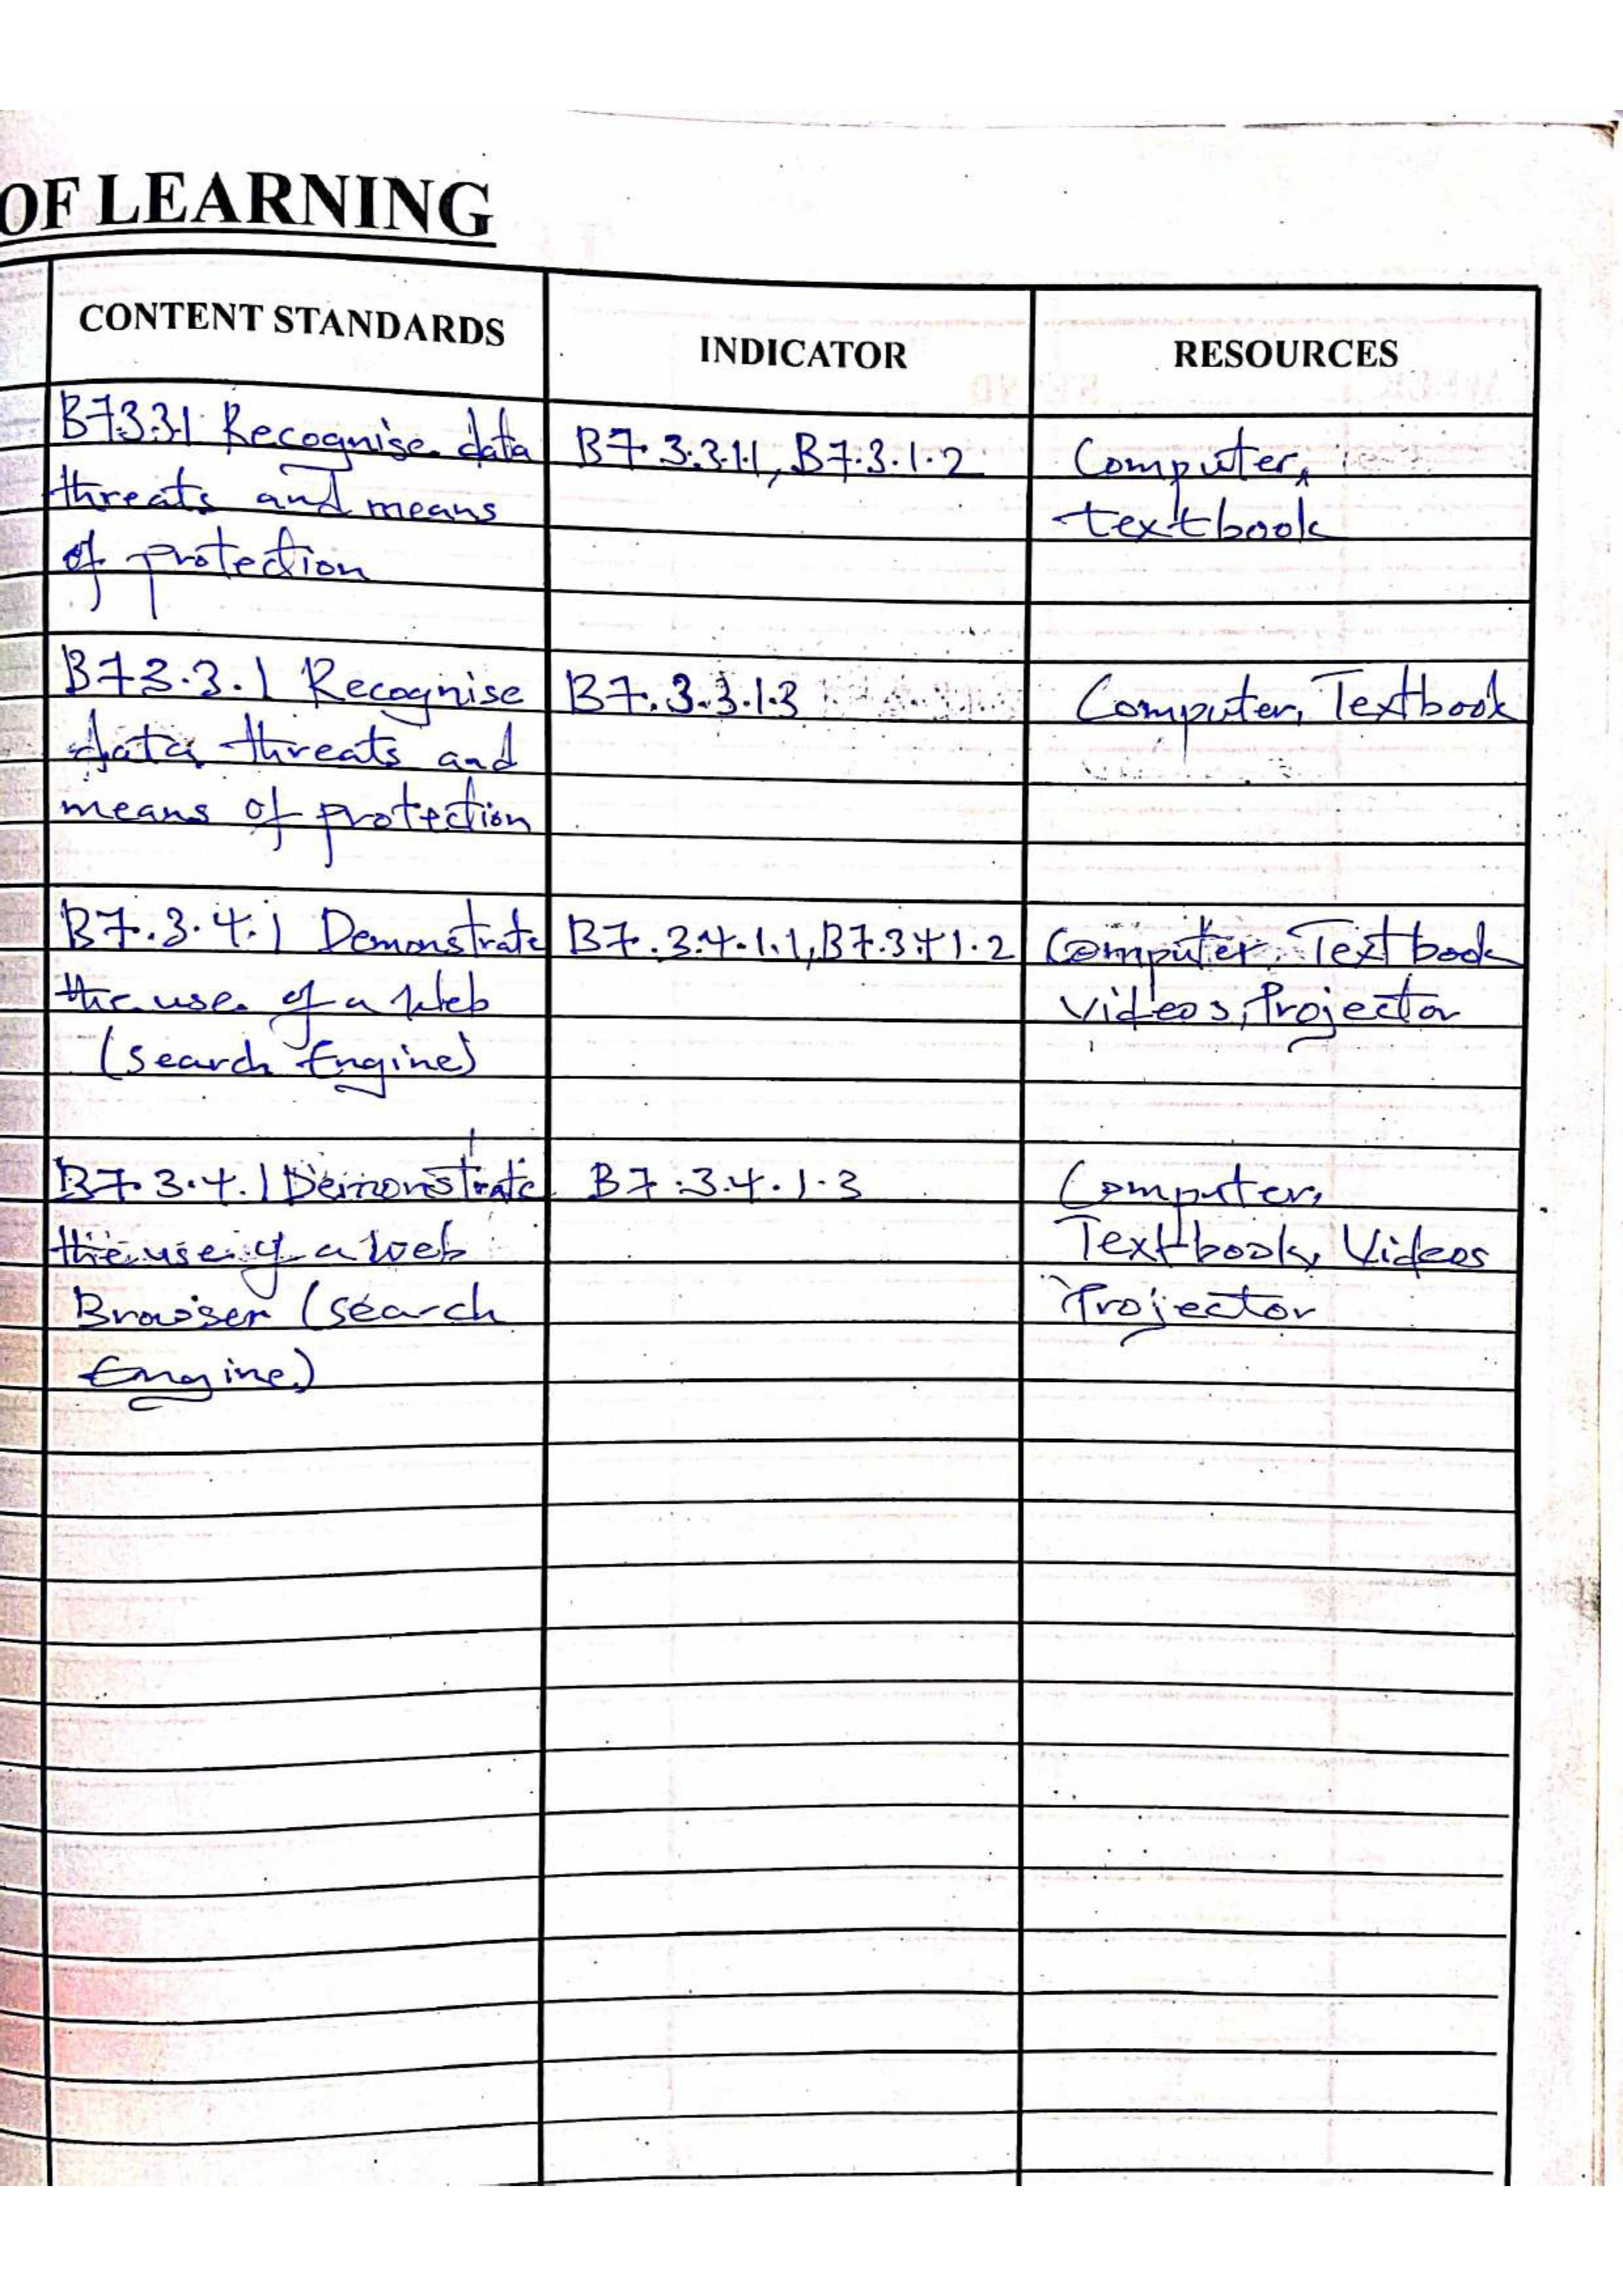 OF LEARNING
CONTENT STANDARDS
INDICATOR
RESOURCES
B7.3.3.1 Recognise data
threats and means
of protection
B7.3.3.1.1, B7.3.1.2
Computer,
textbook
B7.3.3.1 Recognise
data threats and
means of protection
B7.3.3.1.3
Computer, Textbook
B7.3.4.1 Demonstrate
the use of a Web
(search Engine)
B7.3.4.1.1, B7.3.4.1.2
Computer, Textbook
Videos, Projector
B7.3.4.1 Demonstrate
the use of a Web
Browser (search
Engine)
B7.3.4.1.3
Computer,
Textbook, Videos
Projector